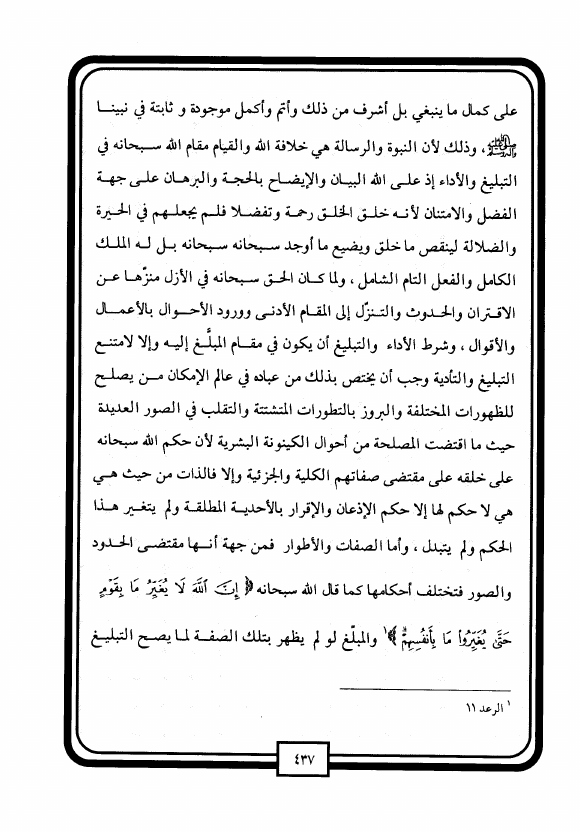 على كمال ما ينبغي بل أشرف من ذلك وأتم وأكمل موجودة و ثابتة في نبينا
ﷺ ، وذلك لأن النبوة والرسالة هي خلافة الله والقيام مقام الله سبحانه في
التبليغ والأداء إذ على الله البيان والإيضاح بالحجة والبرهان على جهة
الفضل والامتنان لأنه خلق الخلق رحمة وتفضلا فلم يجعلهم في الحيرة
والضلالة لينقص ما خلق ويضيع ما أوجد سبحانه سبحانه بل له الملك
الكامل والفعل التام الشامل ، ولما كان الحق سبحانه في الأزل منزّها عن
الاقتران والحدوث والتنزّل إلى المقام الأدنى وورود الأحوال بالأعمال
والأقوال ، وشرط الأداء والتبليغ أن يكون في مقام المبلَّغ إليه وإلا لامتنع
التبليغ والتأدية وجب أن يختص بذلك من عباده في عالم الإمكان من يصلح
للظهورات المختلفة والبروز بالتطورات المتشتتة والتقلب في الصور العديدة
حيث ما اقتضت المصلحة من أحوال الكينونة البشرية لأن حكم الله سبحانه
على خلقه على مقتضى صفاتهم الكلية والجزئية وإلا فالذات من حيث هي
هي لا حكم لها إلا حكم الإذعان والإقرار بالأحدية المطلقة ولم يتغير هذا
الحكم ولم يتبدل ، وأما الصفات والأطوار فمن جهة أنها مقتضى الحدود
والصور فتختلف أحكامها كما قال الله سبحانه ﴿ إِنَّ ٱللَّهَ لَا يُغَيِّرُ مَا بِقَوْمٍ
حَتَّىٰ يُغَيِّرُوا۟ مَا بِأَنفُسِهِمْ ﴾¹ والمبلّغ لو لم يظهر بتلك الصفة لما يصح التبليغ
¹ الرعد ١١
٤٣٧